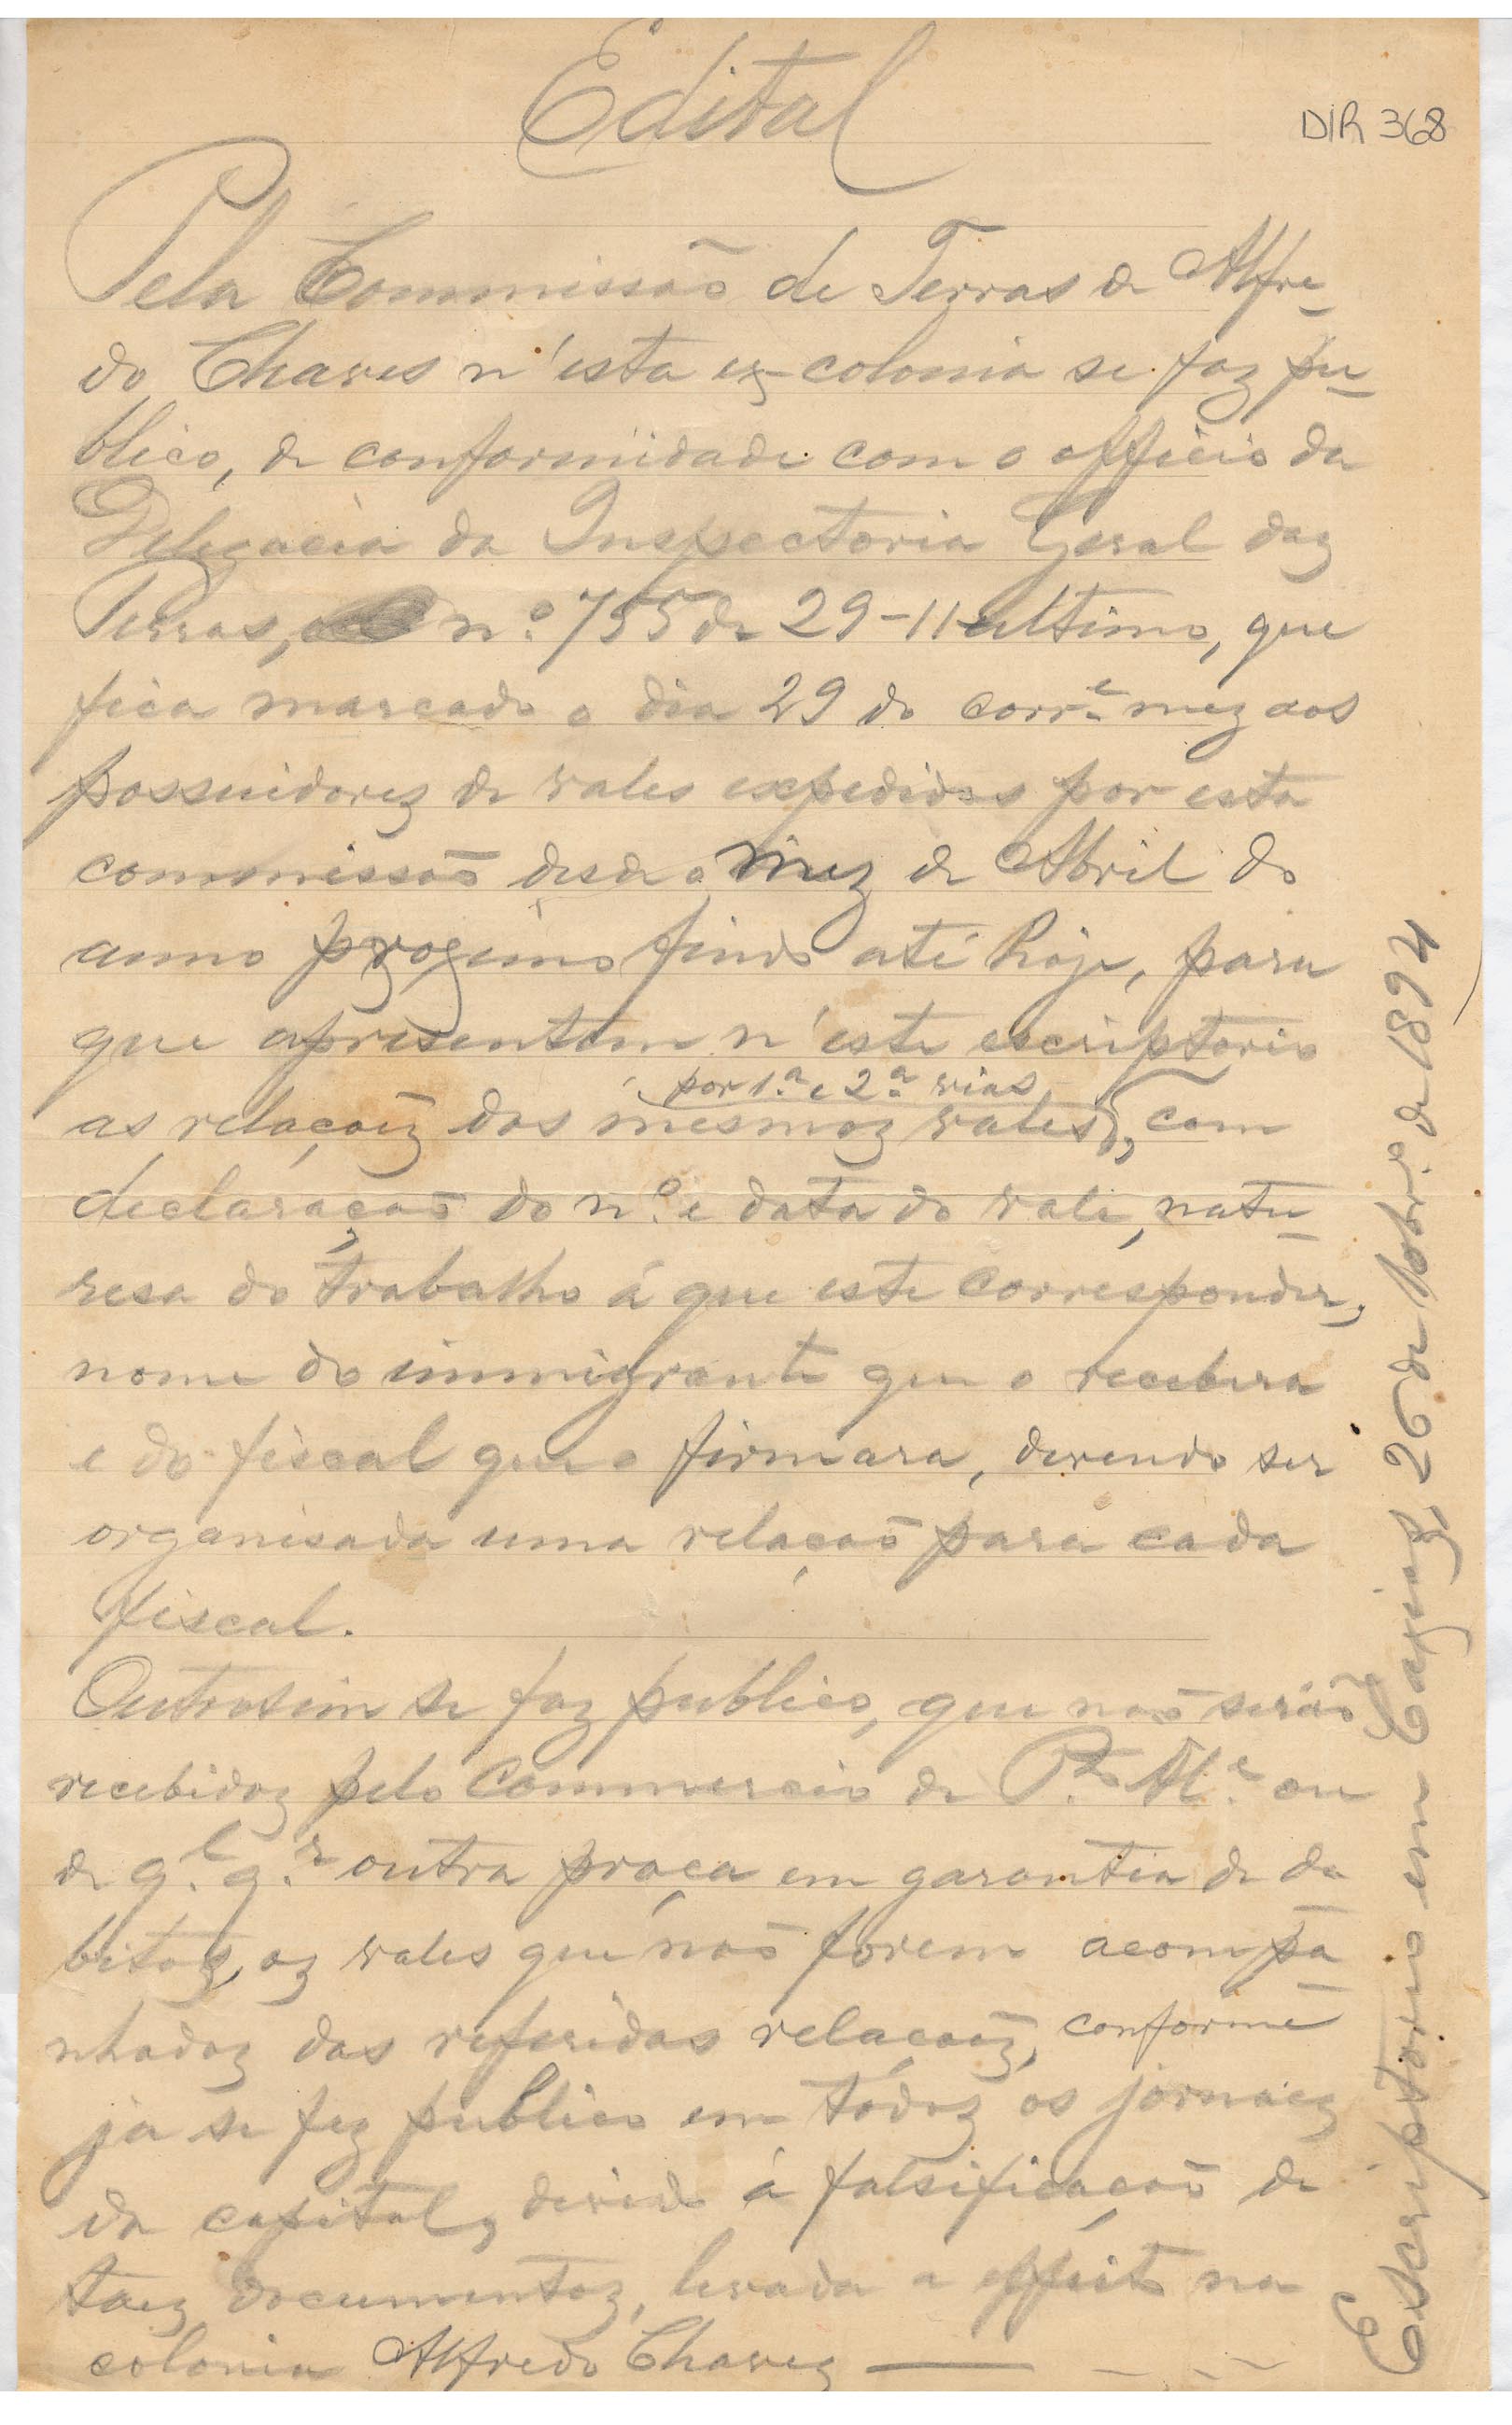 Edital
DIR 368
Pela Commissão de Terras de Alfre-
do Chaves n'esta ex-colonia se faz pu-
blico, de conformidade com o officio da
Delegacia da Inspectoria Geral daz
Terras, nº 755 de 29-11-ultimo, que
fica marcado o dia 29 do corr.e mez aos
possuidorez de vales expedidos por esta
commissão desde o mez de Abril do
anno proximo findo até hoje, para
que apresentem n'este escriptorio
por 1ª e 2ª vias
as relaçoẽz dos mesmoz vales, com
declaração do nº e data do vale, natu-
resa do trabalho á que este corresponder,
nome do immigrante que o recebera
e do fiscal que o firmara, devendo ser
organisada uma relação para cada
fiscal.
Outrosim se faz publico, que não serão
recebidoz pelo Commercio de P.to Al.e ou
de q.l q.r outra praça em garantia de de
bitoz, oz vales que não forem acompa-
nhadoz das referidas relaçoẽz, conforme
ja se fez publico em todoz os jornaez
da capital, devido á falsificação de
taez documentoz, levada a effeito na
colonia Alfredo Chavez
Escriptorio em Caxiaz, 26 de 10br.o de 1894